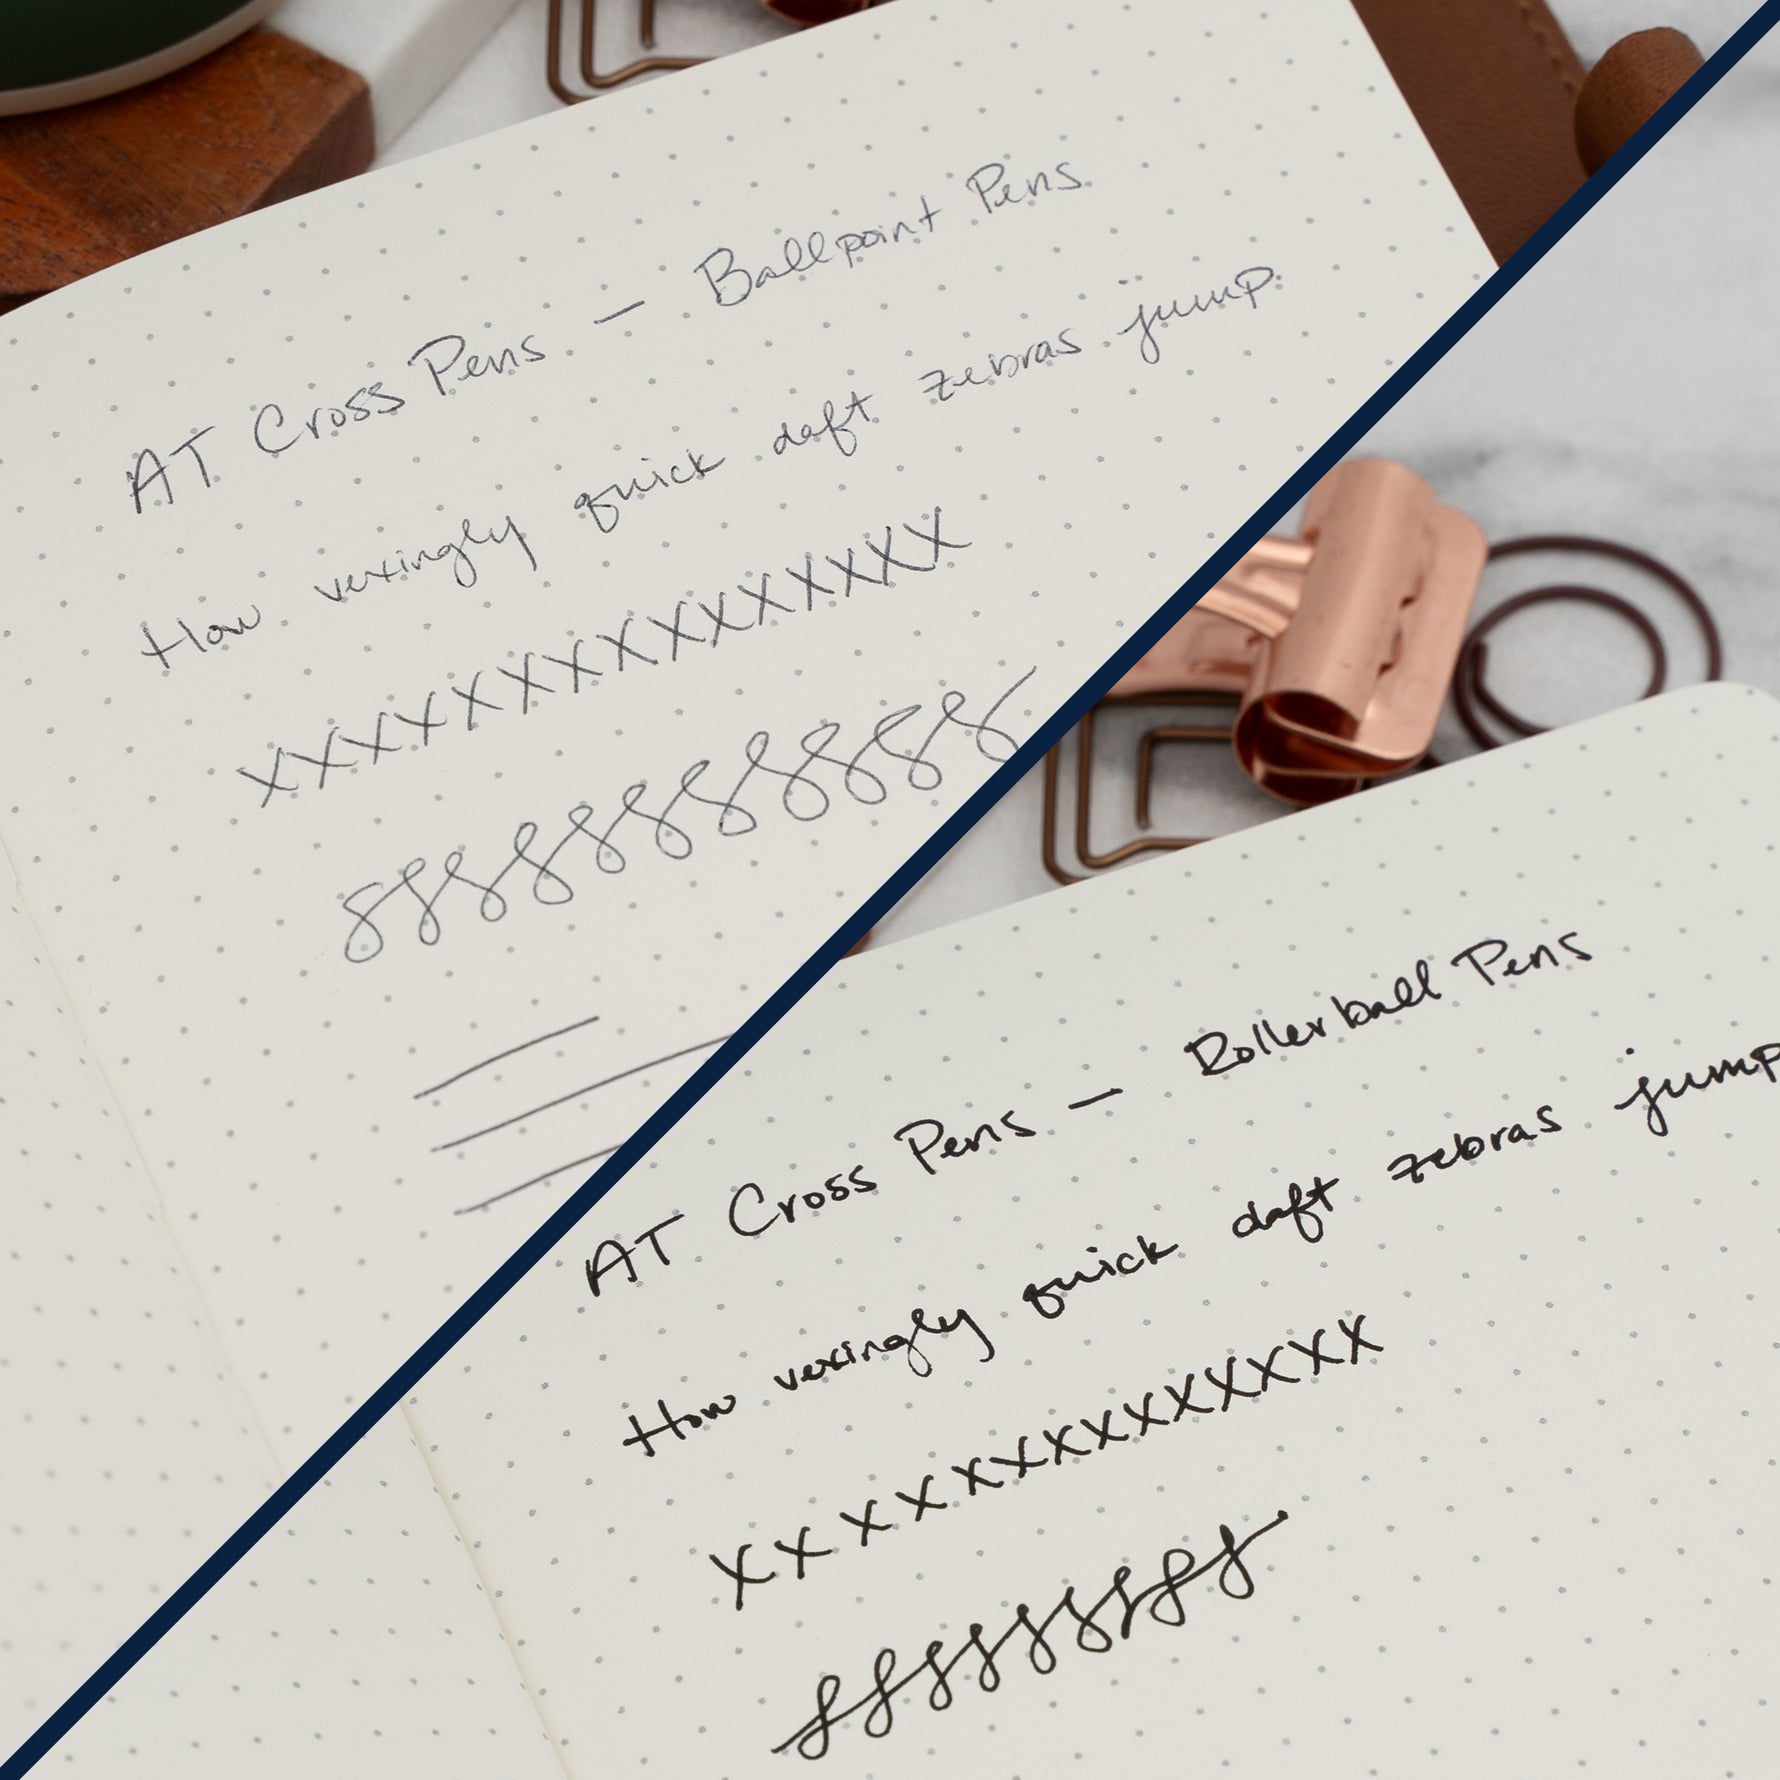 AT Cross Pens — Ballpoint Pens
How vexingly quick daft zebras jump
xxxxxxxxxxxxxxx
AT Cross Pens — Rollerball Pens
How vexingly quick daft zebras jump
xxxxxxxxxxxxxx